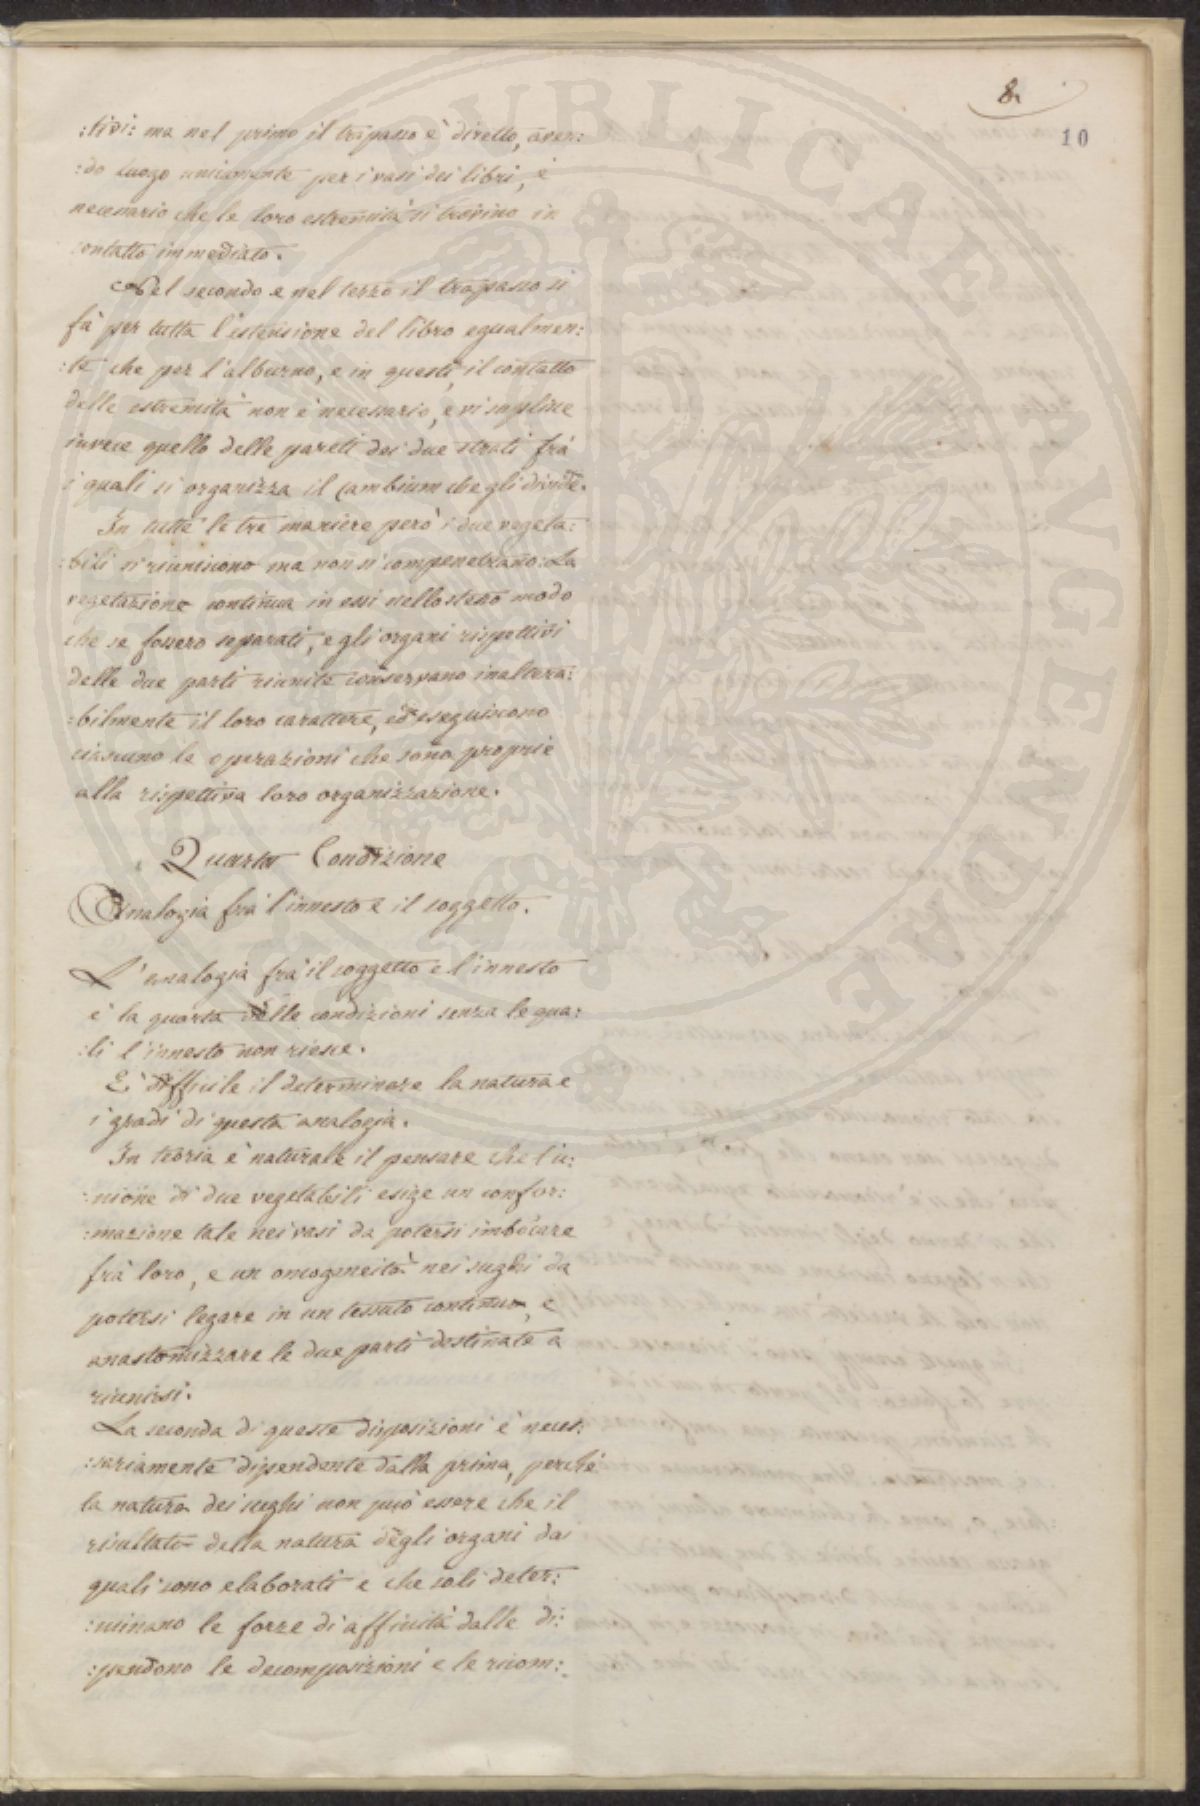 8.
10
:tivi: ma nel primo il trapasso è diretto, aven:
:do luogo unicamente per i vasi dei libri, è
necessario che le loro estremità si trovino in
contatto immediato.
Nel secondo e nel terzo il trapasso si
fà per tutta l'estensione del libro egualmen:
:te che per l'alburno, e in questi, il contatto
delle estremità non è necessario, e vi supplisce
invece quello delle pareti dei due strati frà
i quali si organizza il cambium che gli divide.
In tutte le tre maniere però i due vegeta:
:bili si riuniscono ma non si compenetrano: La
vegetazione continua in essi nello stesso modo
che se fossero separati, e gli organi rispettivi
delle due parti riunite conservano inaltera:
:bilmente il loro carattere, ed eseguiscono
ciascuno le operazioni che sono proprie
alla rispettiva loro organizzazione.
Quarta Condizione
Analogia frà l'innesto e il soggetto.
L'analogia frà il soggetto e l'innesto
è la quarta delle condizioni senza le qua:
:li l'innesto non riesce.
È difficile il determinare la natura e
i gradi di questa analogia.
In teoria è naturale il pensare che l'u:
:nione di due vegetabili esige un confor:
:mazione tale nei vasi da potersi imbocare
frà loro, e un omogeneità nei sughi da
potersi legare in un tessuto continuo, e
anastomizzare le due parti destinate a
riunirsi.
La seconda di queste disposizioni è neces:
:sariamente dipendente dalla prima, perché
la natura dei sughi non può essere che il
risultato della natura degli organi dai
quali sono elaborati e che soli deter:
:minano le forze di affinità dalle di:
:pendono le decomposizioni e le ricom:
PUBLICAE
AVGENDAE